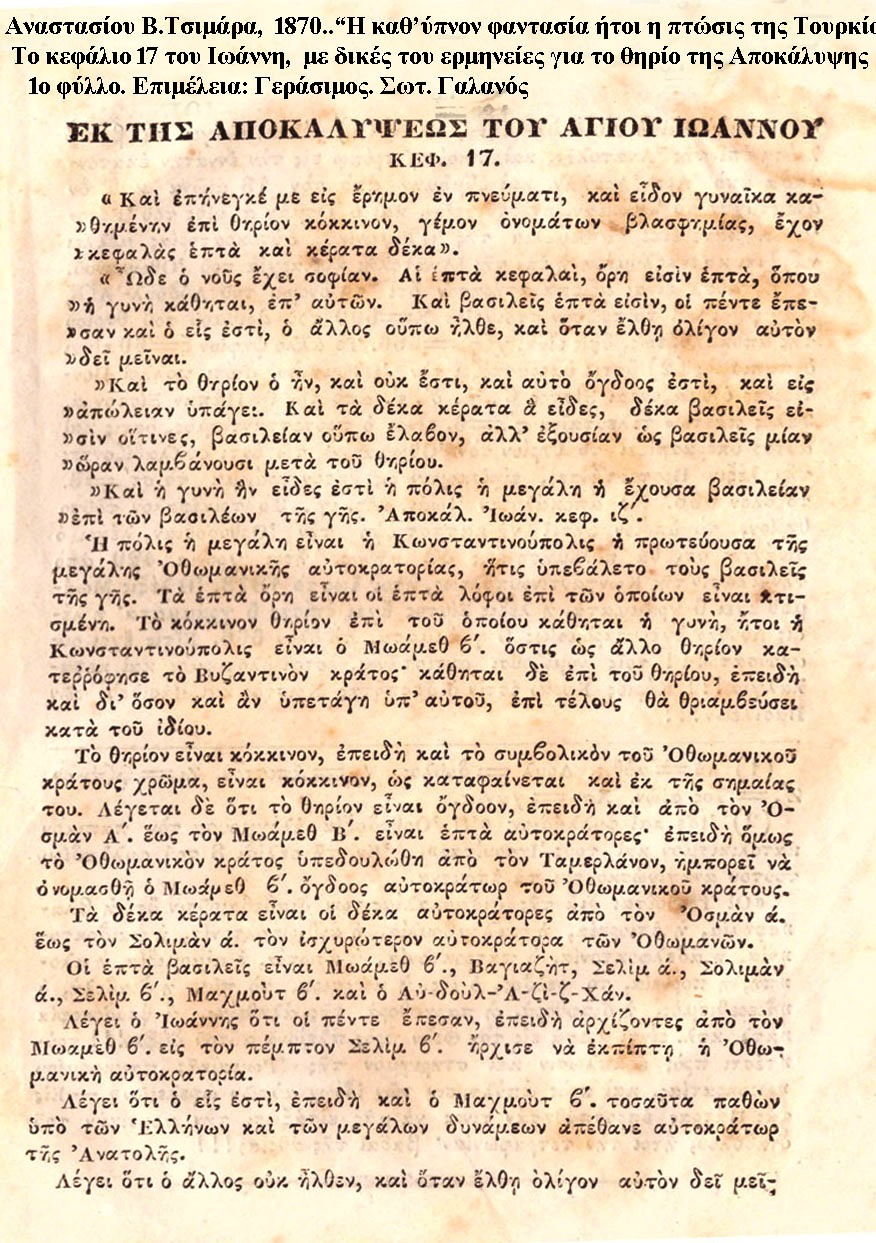 Αναστασίου Β.Τσιμάρα, 1870..“Η καθ’ύπνον φαντασία ήτοι η πτώσις της Τουρκία
Το κεφάλιο 17 του Ιωάννη, με δικές του ερμηνείες για το θηρίο της Αποκάλυψης
1ο φύλλο. Επιμέλεια: Γεράσιμος. Σωτ. Γαλανός
ΕΚ ΤΗΣ ΑΠΟΚΑΛΥΨΕΩΣ ΤΟΥ ΑΓΙΟΥ ΙΩΑΝΝΟΥ
ΚΕΦ. 17.
« Καὶ ἐπήνεγκέ με εἰς ἔρημον ἐν πνεύματι, καὶ εἶδον γυναῖκα κα-
»θημένην ἐπὶ θηρίον κόκκινον, γέμον ὀνομάτων βλασφημίας, ἔχον
»κεφαλὰς ἑπτὰ καὶ κέρατα δέκα».
« Ὧδε ὁ νοῦς ἔχει σοφίαν. Αἱ ἑπτὰ κεφαλαὶ, ὄρη εἰσὶν ἑπτὰ, ὅπου
»ἡ γυνὴ κάθηται, ἐπ’ αὐτῶν. Καὶ βασιλεῖς ἑπτὰ εἰσὶν, οἱ πέντε ἔπε-
»σαν καὶ ὁ εἷς ἐστὶ, ὁ ἄλλος οὔπω ἦλθε, καὶ ὅταν ἔλθῃ ὀλίγον αὐτὸν
»δεῖ μεῖναι.
»Καὶ τὸ θηρίον ὁ ἦν, καὶ οὐκ ἔστι, καὶ αὐτὸ ὄγδοος ἐστὶ, καὶ εἰς
»ἀπώλειαν ὑπάγει. Καὶ τὰ δέκα κέρατα ἃ εἶδες, δέκα βασιλεῖς εἰ-
»σὶν οἵτινες, βασιλείαν οὔπω ἔλαβον, ἀλλ’ ἐξουσίαν ὡς βασιλεῖς μίαν
»ὥραν λαμβάνουσι μετὰ τοῦ θηρίου.
»Καὶ ἡ γυνὴ ἣν εἶδες ἐστὶ ἡ πόλις ἡ μεγάλη ἡ ἔχουσα βασιλείαν
»ἐπὶ τῶν βασιλέων τῆς γῆς. Ἀποκάλ. Ἰωάν. κεφ. ιζ΄.
Ἡ πόλις ἡ μεγάλη εἶναι ἡ Κωνσταντινούπολις ἡ πρωτεύουσα τῆς
μεγάλης Ὀθωμανικῆς αὐτοκρατορίας, ἥτις ὑπεβάλετο τοὺς βασιλεῖς
τῆς γῆς. Τὰ ἑπτὰ ὄρη εἶναι οἱ ἑπτὰ λόφοι ἐπὶ τῶν ὁποίων εἶναι κτι-
σμένη. Τὸ κόκκινον θηρίον ἐπὶ τοῦ ὁποίου κάθηται ἡ γυνὴ, ἤτοι ἡ
Κωνσταντινούπολις εἶναι ὁ Μωάμεθ β΄. ὅστις ὡς ἄλλο θηρίον κα-
τεῤῥόφησε τὸ Βυζαντινὸν κράτος· κάθηται δὲ ἐπὶ τοῦ θηρίου, ἐπειδὴ
καὶ δι’ ὅσον καὶ ἂν ὑπετάγη ὑπ’ αὐτοῦ, ἐπὶ τέλους θὰ θριαμβεύσει
κατὰ τοῦ ἰδίου.
Τὸ θηρίον εἶναι κόκκινον, ἐπειδὴ καὶ τὸ συμβολικὸν τοῦ Ὀθωμανικοῦ
κράτους χρῶμα, εἶναι κόκκινον, ὡς καταφαίνεται καὶ ἐκ τῆς σημαίας
του. Λέγεται δὲ ὅτι τὸ θηρίον εἶναι ὄγδοον, ἐπειδὴ καὶ ἀπὸ τὸν Ὀ-
σμὰν Α΄. ἕως τὸν Μωάμεθ Β΄. εἶναι ἑπτὰ αὐτοκράτορες· ἐπειδὴ ὅμως
τὸ Ὀθωμανικὸν κράτος ὑπεδουλώθη ἀπὸ τὸν Ταμερλάνον, ἠμπορεῖ νὰ
ὀνομασθῇ ὁ Μωάμεθ β΄. ὄγδοος αὐτοκράτωρ τοῦ Ὀθωμανικοῦ κράτους.
Τὰ δέκα κέρατα εἶναι οἱ δέκα αὐτοκράτορες ἀπὸ τὸν Ὀσμὰν ά.
ἕως τὸν Σολιμὰν ά. τὸν ἰσχυρώτερον αὐτοκράτορα τῶν Ὀθωμανῶν.
Οἱ ἑπτὰ βασιλεῖς εἶναι Μωάμεθ β΄., Βαγιαζὴτ, Σελὶμ ά., Σολιμὰν
ά., Σελὶμ β΄., Μαχμοὺτ β΄. καὶ ὁ Αὐ-δοὺλ-Ἀ-ζὶ-ζ-Χάν.
Λέγει ὁ Ἰωάννης ὅτι οἱ πέντε ἔπεσαν, ἐπειδὴ ἀρχίζοντες ἀπὸ τὸν
Μωαμὲθ β΄. εἰς τὸν πέμπτον Σελὶμ β΄. ἤρχισε νὰ ἐκπίπτῃ ἡ Ὀθω-
μανικὴ αὐτοκρατορία.
Λέγει ὅτι ὁ εἷς ἐστὶ, ἐπειδὴ καὶ ὁ Μαχμοὺτ β΄. τοσαῦτα παθὼν
ὑπὸ τῶν Ἑλλήνων καὶ τῶν μεγάλων δυνάμεων ἀπέθανε αὐτοκράτωρ
τῆς Ἀνατολῆς.
Λέγει ὅτι ὁ ἄλλος οὐκ ἦλθεν, καὶ ὅταν ἔλθῃ ὀλίγον αὐτὸν δεῖ μεῖ-